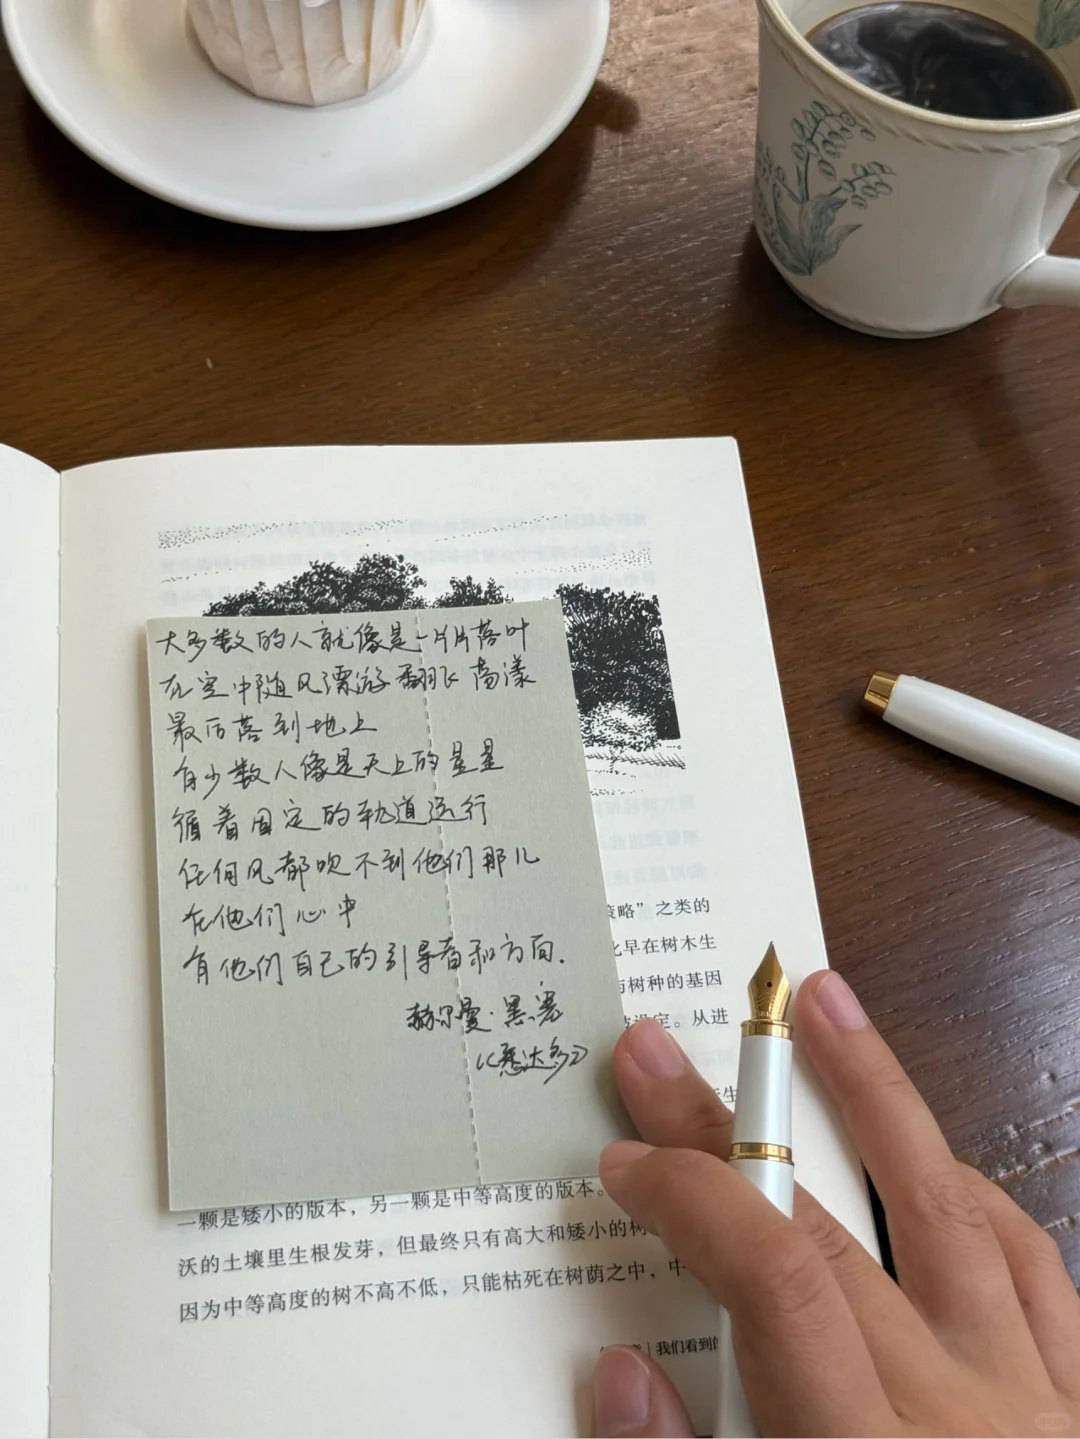 大多数的人就像是一片片落叶
在空中随风漂游翻飞荡漾
最后落到地上
有少数人像是天上的星星
循着固定的轨道运行
任何风都吹不到他们那儿
在他们心中
有他们自己的引导者和方向.
赫尔曼·黑塞
《悉达多》
策略”之类的
化早在树木生
与树种的基因
设定。从进
一颗是矮小的版本，另一颗是中等高度的版本。
沃的土壤里生根发芽，但最终只有高大和矮小的树
因为中等高度的树不高不低，只能枯死在树荫之中，中
| 我们看到的